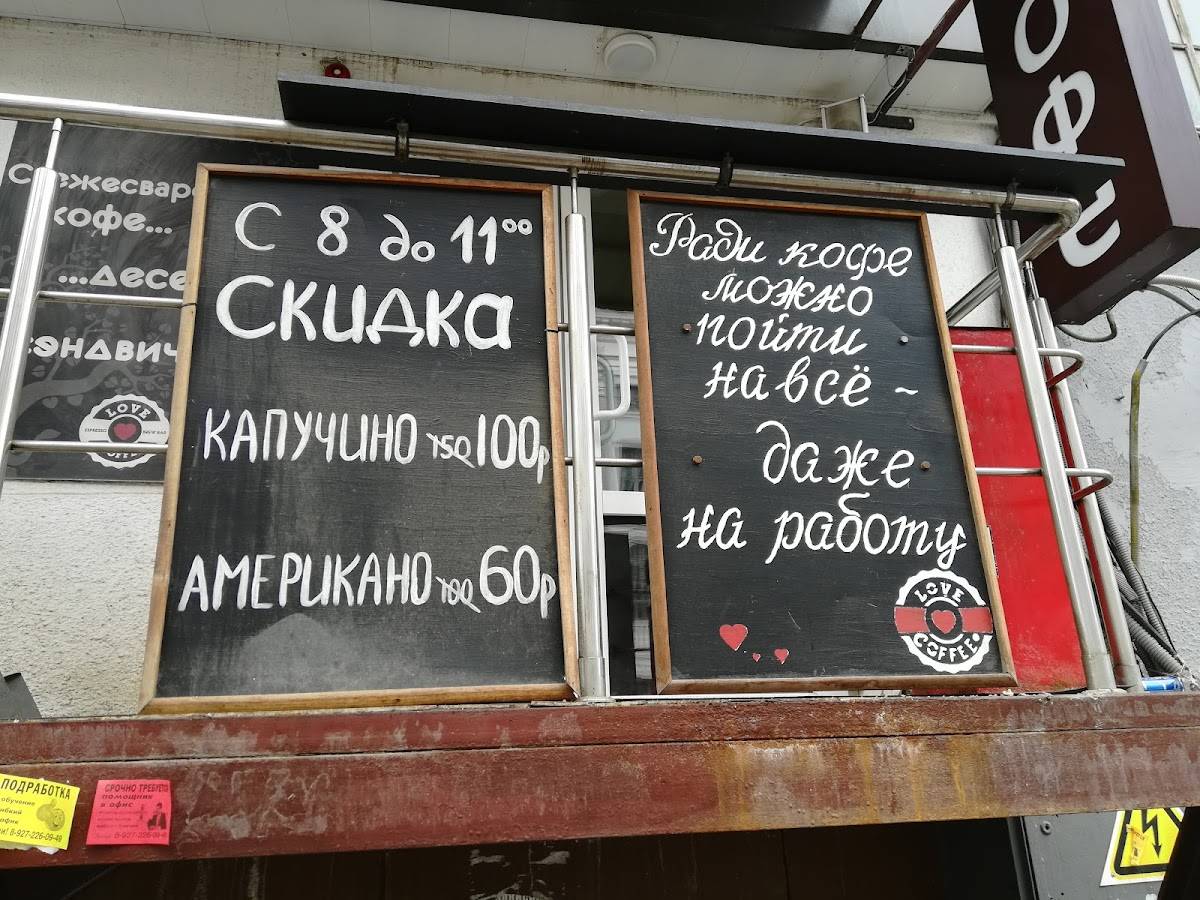 кофе...
...десе
эндвич
LOVE
С 8 до 11⁰⁰
Скидка
КАПУЧИНО 150 100р
АМЕРИКАНО 100 60р
Ради кофе
можно
пойти
на всё ~
даже
на работу
LOVE
COFFEE
офи
ПОДРАБОТКА
обучение
8-927-226-09-49
СРОЧНО ТРЕБУЕТСЯ
помощник
в офис